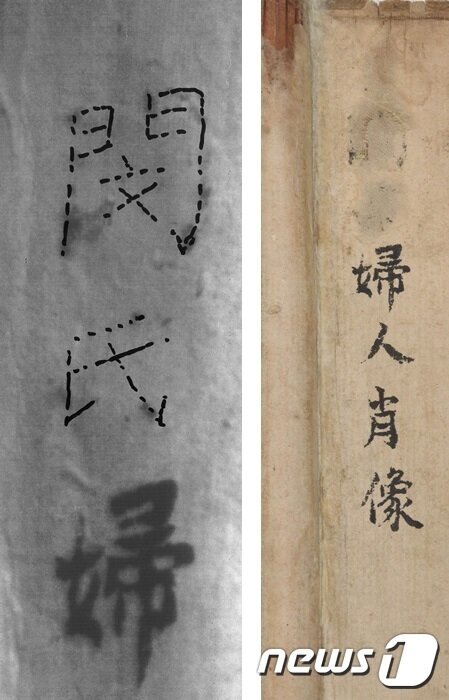 閔氏婦
婦人肖像
news1